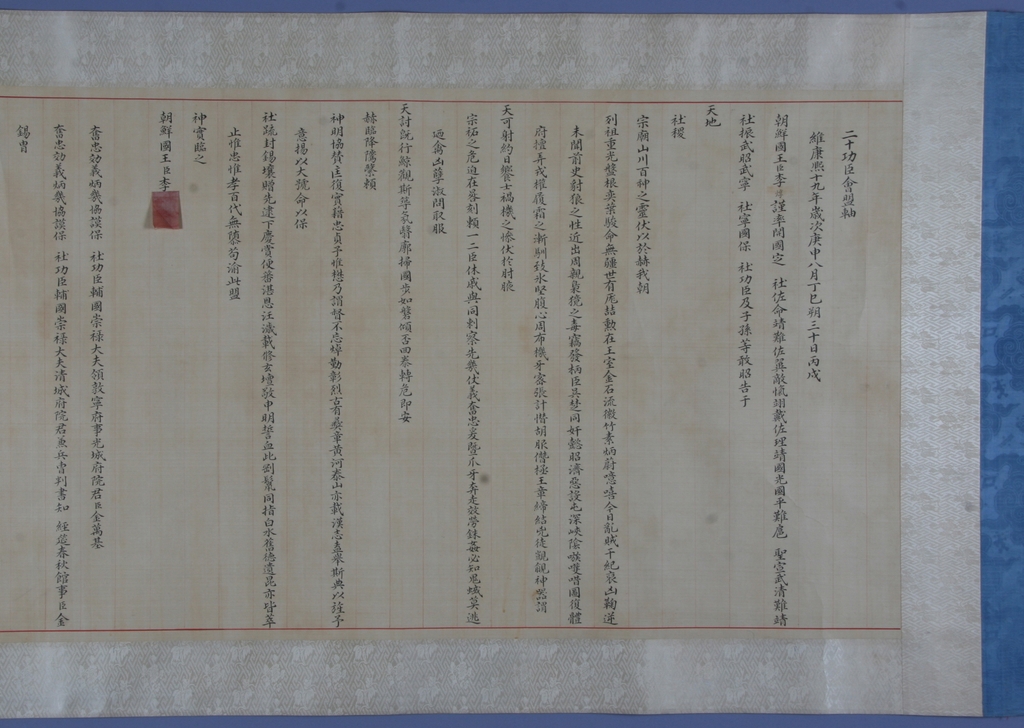 二十功臣會盟軸
維康熙十九年歲次庚申八月丁巳朔三十日丙戌
朝鮮國王臣李 謹率開國定 社佐命靖難佐翼敵愾翊戴佐理靖國光國平難扈 聖宣武清難靖
社振武昭武寧 社寧國保 社功臣及子孫等敢昭告于
天地
社稷
宗廟山川百神之靈伏以於赫我朝
列祖重光盤根奕葉駿命無疆世有厖結勳在王室金石流徽竹素炳蔚噫嘻今日亂賊干紀裒凶鞠逆
未聞前史豺狼之性近出周親梟獍之毒竊發柄臣共楚同奸懿昭濟惡設屯深峽陰嗾嘍嗜圖復體
府擅弄戎權履霜之漸馴致氷堅腹心周布機牙密張計憯胡服僭極王章締結兇徒覬覦神器謂
天可射約日饗士禍機之慘伏於肘腋
宗祏之危迫在晷刻賴一二臣休戚與同刺察先幾仗義奮忠爰曁爪牙奔走效勞銖姦必知鬼蜮莫逃
迺禽凶孽淑問取服
天討旣行鯨觀斯築氛翳廓掃國步如磐傾否回泰轉危卽安
赫臨降隲繄賴
神明協贊匡復實藉忠貞予惟懋乃謂督不忘焯勤彰烈古有彝章黃河泰山亦載漢志盍舉斯典以旌予
意揚以大號命以保
社疏封錫壤贈先逮下慶賞便蕃湛恩汪濊載修玄壇敬申明誓血此剛鬣同指白水舊德遺昆亦皆萃
止惟忠惟孝百代無隳苟渝此盟
神實臨之
朝鮮國王臣李
奮忠効義炳幾協謨保 社功臣輔國崇祿大夫領敦寧府事光城府院君臣金萬基
奮忠効義炳幾協謨保 社功臣輔國崇祿大夫淸城府院君兼兵曹判書知 經筵春秋館事臣金
錫胄